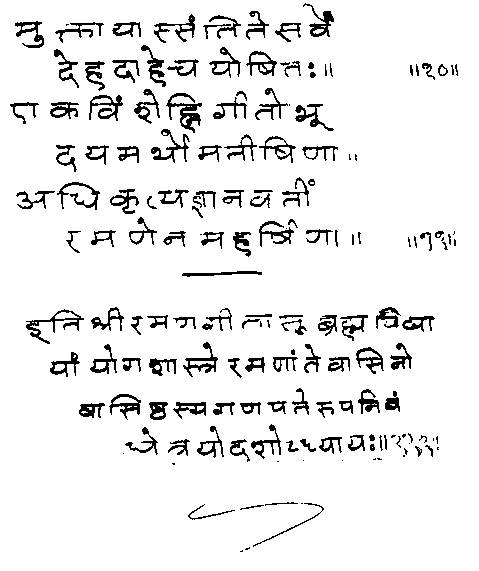 मुक्तायास्संति ते सर्वे
देहदाहे च योषितः॥ ॥१०॥
एकविंशेह्नि गीतोभू
दयमर्थो मनीषिणा।
अधिकृत्य ज्ञानवतीं
रमणेन महर्षिणा॥ ॥११॥
इति श्रीरमणगीतासू ब्रह्मविद्या
यां योगशास्त्रे रमणांतेवासिनो
वासिष्ठस्य गणपतेरुपनिबं
धे त्रयोदशोऽध्यायः॥१३॥